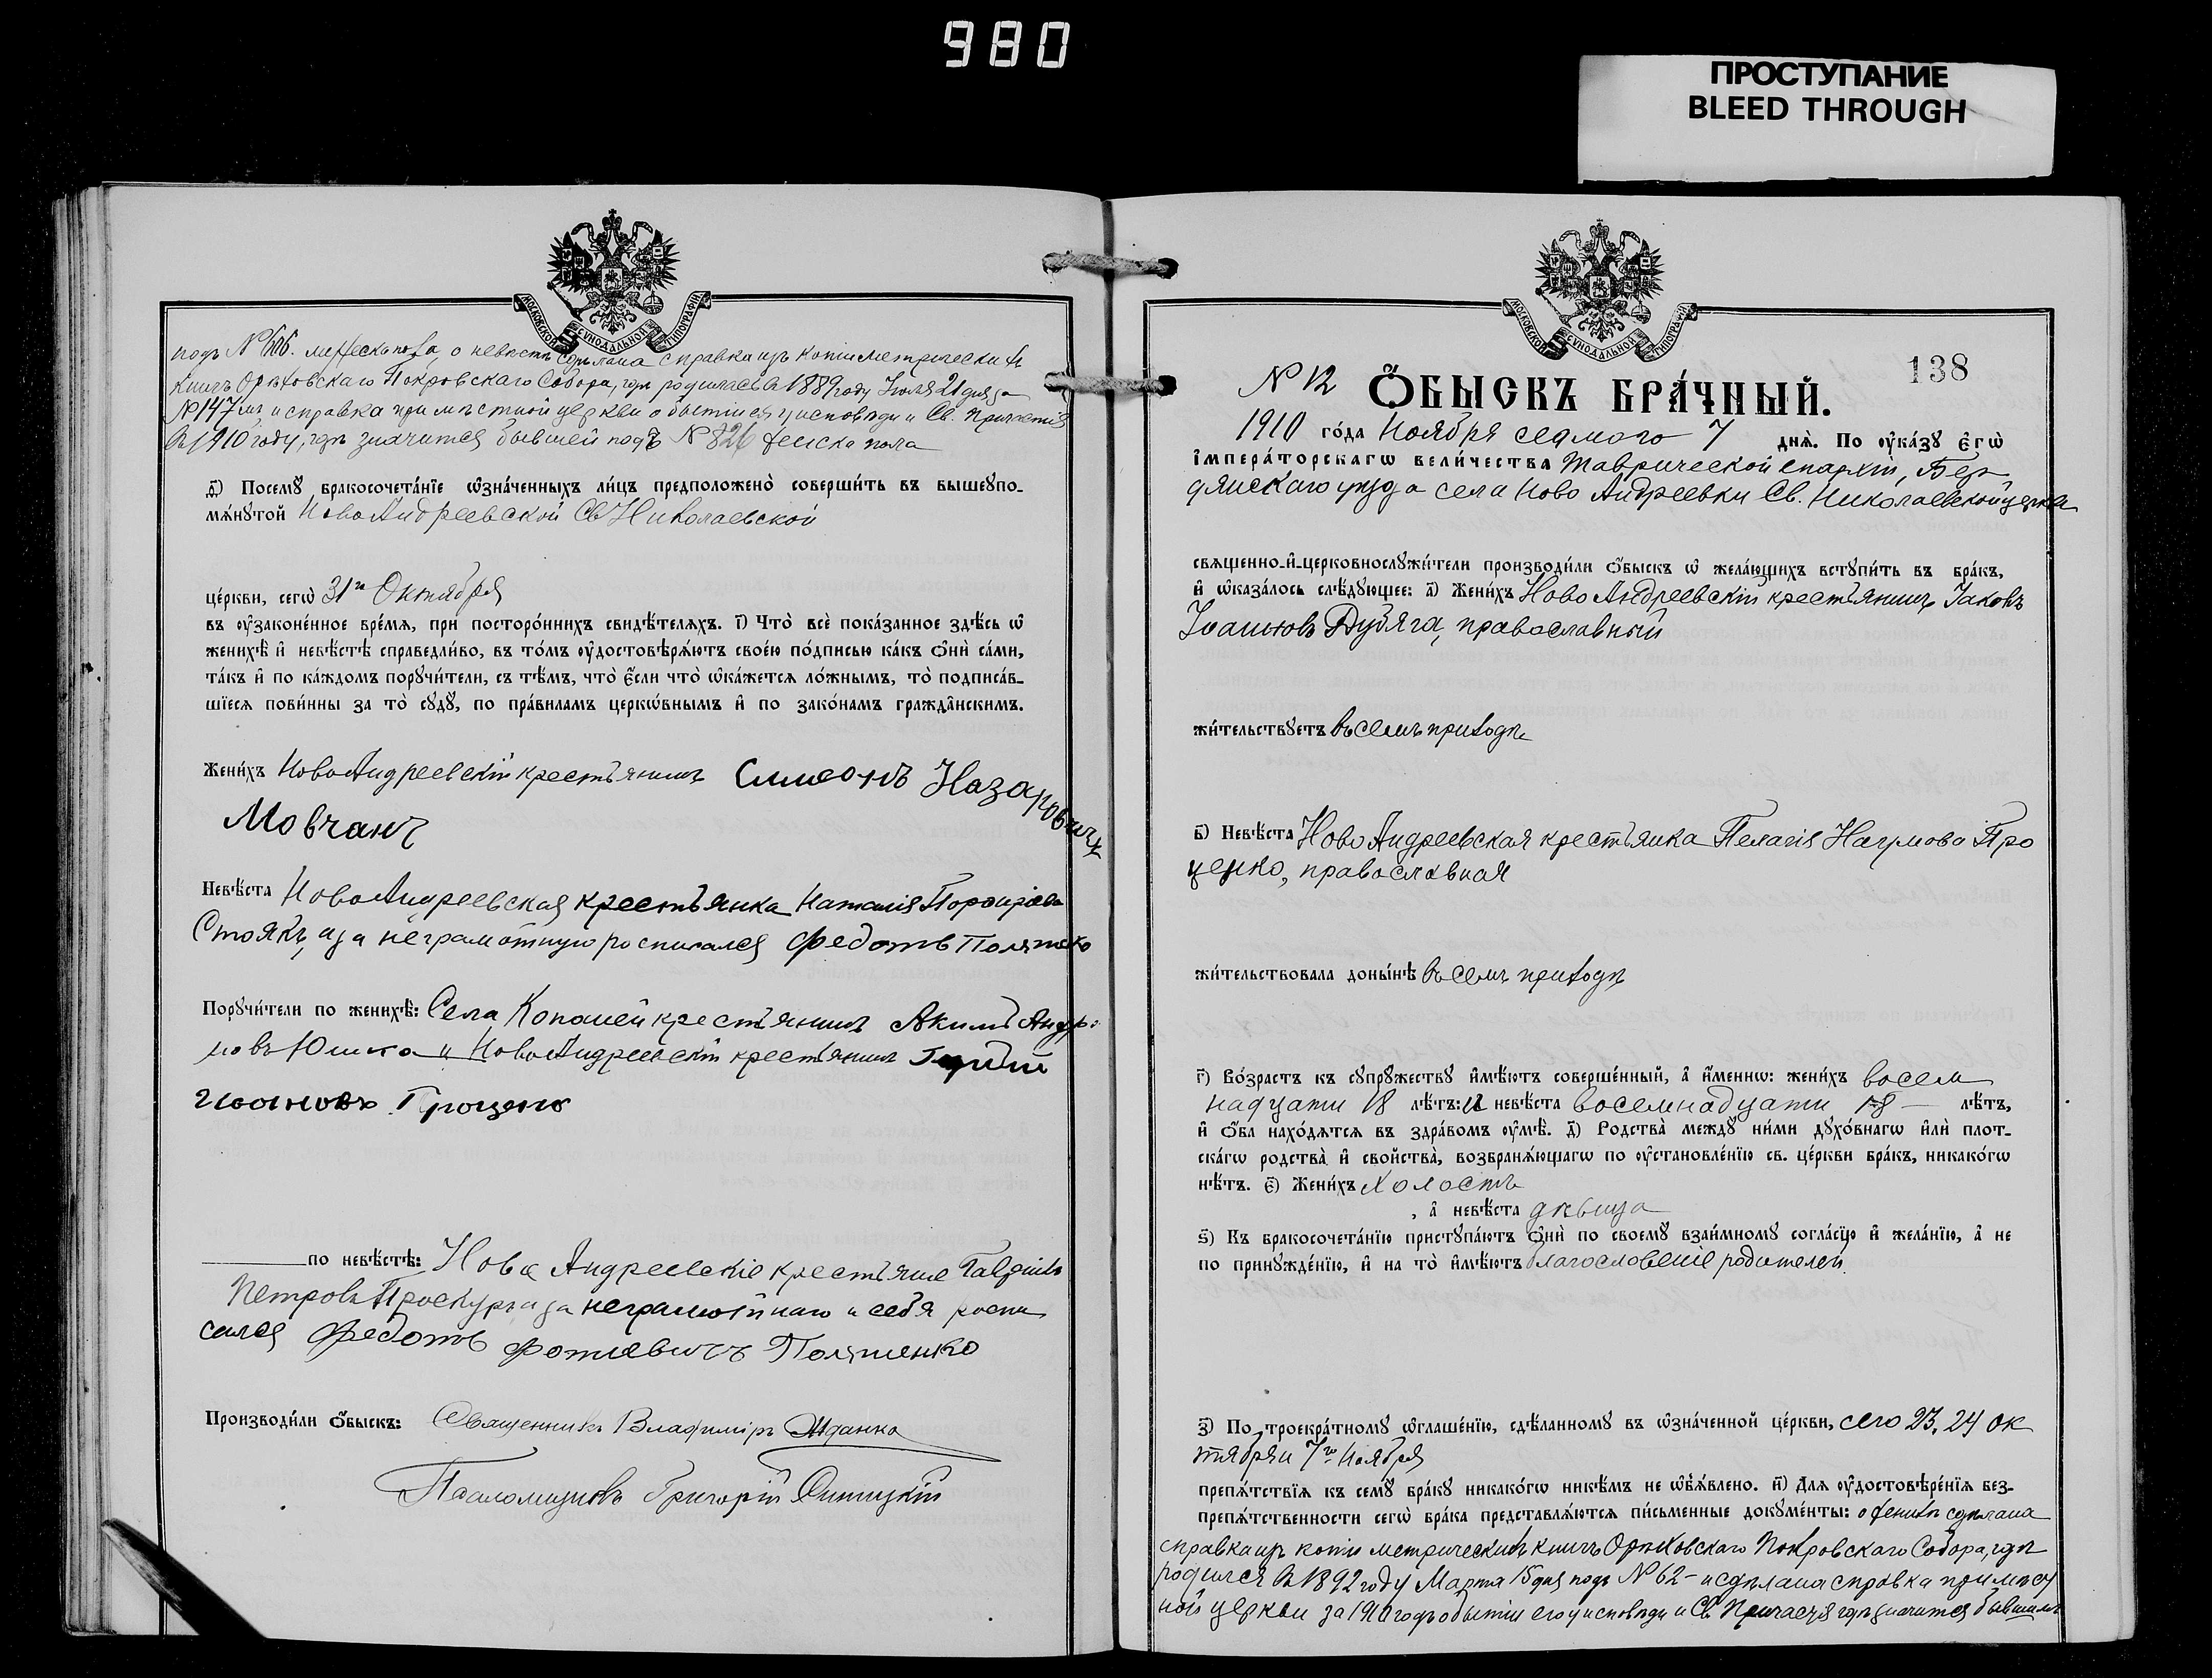 980
ПРОСТУПАНИЕ
BLEED THROUGH
МОСКОВСКОЙ СѴНОДАЛЬНОЙ ТИПОГРАФІИ
подъ № мужеска пола, о невѣстѣ сдѣлана справка изъ копіи метрическихъ
книгъ Орѣховскаго Покровскаго Собора, гдѣ родилась въ 1889 году Іюля 21 дня за
№ 147 мъ и справка при мѣстной церкви о бытіи ея у исповѣди и Св. Причастія
въ 1910 году, гдѣ значится бывшей подъ № 826 женска пола
д҃і) Посемꙋ̀ бракосочета́нїе ѡ҆зна́ченныхъ ли́цъ предположено̀ соверши́ть въ вышеꙋпо-
мѧ́нꙋтой Ново Андреевской Св Николаевской
це́ркви, сегѡ̀ 31го Октября
въ ᲂу҆законе́нное вре́мѧ, при посторо́ннихъ свидѣ́телѧхъ. і҃) Что̀ всѐ пока́занное здѣ́сь ѡ҆
женихѣ̀ и҆ невѣ́стѣ справедли́во, въ то́мъ ᲂу҆достовѣрѧ́ютъ свое́ю по́дписью ка́къ ѻ҆нѝ са́ми,
та́къ и҆ по ка́ждомъ порꙋчи́тели, съ тѣ́мъ, что̀ є҆́сли что̀ ѡ҆ка́жетсѧ ло́жнымъ, то̀ подписа́в-
шїесѧ пови́нны за то̀ сꙋдꙋ̀, по пра́виламъ церкѡ́внымъ и҆ по зако́намъ гражда̂нскимъ.
Жени́хъ Ново Андреевскій крестьянинъ Симеонъ Назаровичъ
Мовчанъ
Невѣ́ста Ново Андреевская крестьянка Наталія Порфирьева
Стоякъ, а за неграмотную росписался Федотъ Поляшенко
Порꙋчи́тели по женихѣ̀: Села Копаней крестьянинъ Акимъ
Юшко и Ново Андреевскій крестьянинъ
Ивановъ Проценко
по невѣ́стѣ: Ново Андреевскіе крестьяне Гавріилъ
Петровъ Проскура а за неграмотнаго и себя роспи
сался Федотъ Фотиевичъ Поляшенко
Производи́ли ѻ҆́быскъ: Священникъ Владиміръ Жданко
Псаломщикъ Григорій
МОСКОВСКОЙ СѴНОДАЛЬНОЙ ТИПОГРАФІИ
138
№ 12
Ѻ҆́БЫСКЪ БРА́ЧНЫЙ.
1910 го́да Ноября седмого 7 днѧ̀. По ᲂу҆ка́зꙋ є҆гѡ̀
і҆мпера́торскагѡ вели́чества Таврической епархіи, Бер
дянскаго уѣзда села Ново Андреевки Св. Николаевской церкви
свѧщенно-и҆-церковнослꙋжи́тели производи́ли ѻ҆́быскъ ѡ҆ жела́ющихъ встꙋпи́ть въ бра́къ,
и҆ ѡ҆каза́лось слѣ́дꙋющее: а҃) Жени́хъ Ново Андреевскій крестьянинъ Іаковъ
Іоанновъ Дубяга, православный
жи́тельствꙋетъ въ семъ приходѣ
б҃) Невѣ́ста Ново Андреевская крестьянка Пелагія Наумова Про
ценко, православная
жи́тельствовала доны́нѣ въ семъ приходѣ
г҃) Во́зрастъ къ сꙋпрꙋ́жествꙋ и҆мѣ́ютъ соверше́нный, а҆ и҆́меннѡ: жени́хъ восем
надцати 18 лѣ́тъ: и невѣ́ста восемнадцати 18 — лѣ́тъ,
и҆ ѻ҆́ба нахо́дѧтсѧ въ здра́вомъ ᲂу҆мѣ̀. д҃) Родства̀ междꙋ̀ ни́ми дꙋхо́внагѡ и҆лѝ плот-
ска́гѡ родства̀ и҆ свойства̀, возбранѧ́ющагѡ по ᲂу҆становле́нїю св. це́ркви бра́къ, никако́гѡ
нѣ́тъ. є҃) Жени́хъ холостъ
, а҆ невѣ́ста дѣвица
ѕ҃) Къ бракосочета́нїю пристꙋпа́ютъ ѻ҆нѝ по своемꙋ̀ взаи́мномꙋ согла́сїю и҆ жела́нїю, а҆ не
по принꙋжде́нїю, и҆ на то̀ и҆мѣ́ютъ благословеніе родителей.
з҃) По троекра́тномꙋ ѡ҆глаше́нїю, сдѣ́ланномꙋ въ ѡ҆зна́ченной це́ркви, сего 23, 24 ок
тября и 7го ноября
препѧ́тствїѧ къ семꙋ̀ бра́кꙋ никако́гѡ никѣ́мъ не ѡ҆б̾ѧ́влено. и҃) Длѧ ᲂу҆достовѣре́нїѧ без-
препѧ́тственности сегѡ̀ бра́ка представлѧ́ютсѧ пи́сьменные докꙋме́нты: о женихѣ сдѣлана
справка изъ копіи метрическихъ книгъ Орѣховскаго Покровскаго Собора, гдѣ
родился въ 1892 году Марта 15 дня подъ № 62 – и сдѣлана справка при мѣст
ной церкви за 1910 годъ о бытіи его у исповѣди и Св. Причастія гдѣ значится бывшимъ